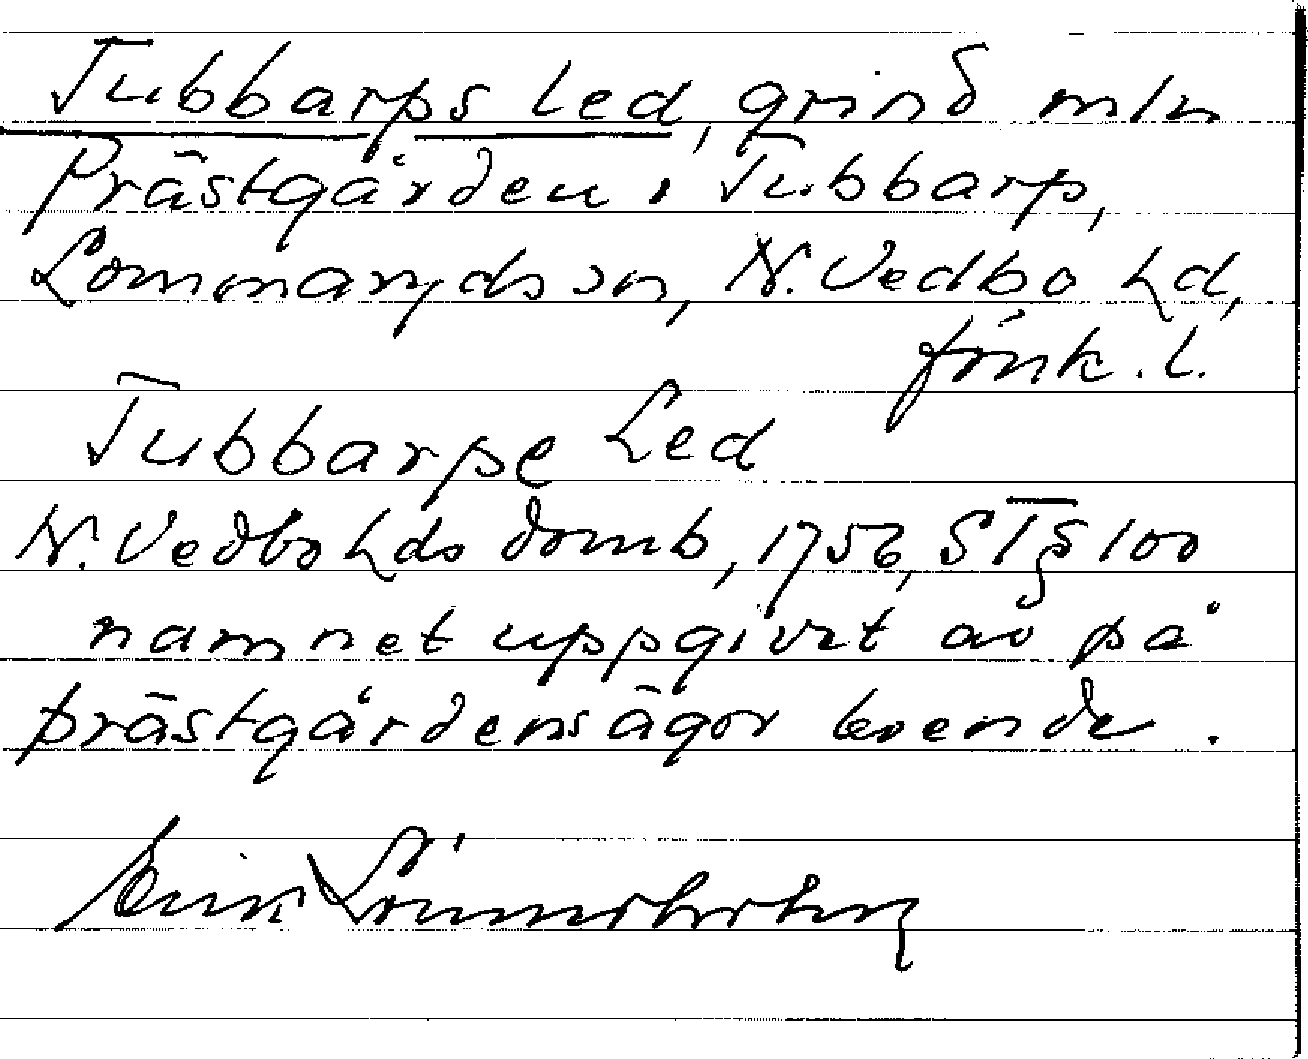 Tubbarps led, grind mln
Prästgården i Tubbarp,
Lommaryds sn, N. Vedbo hd,
Jönk. l.
Tubbarpe Led
N. Vedbo hds domb, 1756, ST § 100
namnet uppgivet av på
prästgårdens ägor boende.
Erik